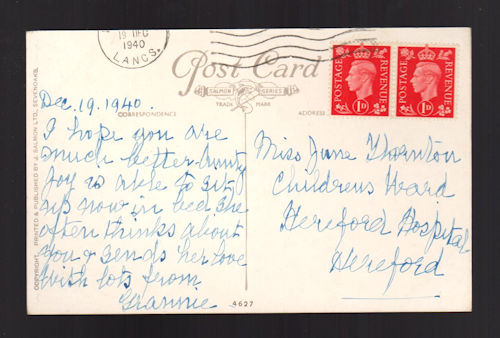 19 DEC
1940
LANCS.
Post Card
SALMON SERIES
TRADE MARK
CORRESPONDENCE
ADDRESS
POSTAGE REVENUE
1D
POSTAGE REVENUE
1D
Dec. 19. 1940.
I hope you are
much better. Aunty
Joy is able to sit
up now in bed she
often thinks about
you & sends her love
with lots from
Grannie
Miss June Thornton
Childrens Ward
Hereford Hospital
Hereford
COPYRIGHT. PRINTED & PUBLISHED BY J. SALMON LTD., SEVENOAKS.
4627